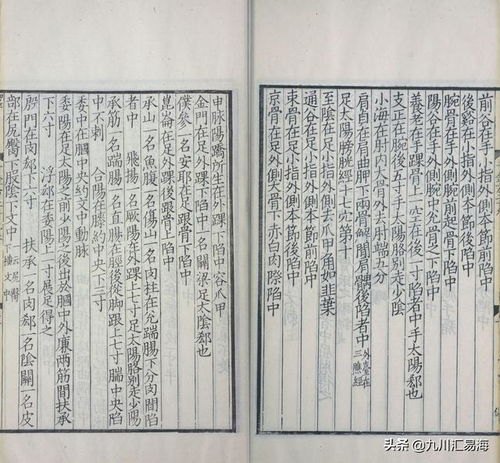 前谷在手小指外側本節前陷中
後谿在手小指外側本節後陷中
腕骨在手外側腕前起骨下陷中
陽谷在手外側腕中兌骨之下陷中
養老在手踝骨上一空在後一寸陷者中手太陽郄也
支正在腕後五寸手太陽胳別走少陰
小海在肘內大骨外去肘端五分
肩貞在肩曲胛下兩骨解間肩髃後陷者中外臺在三膲經
足太陽膀胱經十七穴第十
至陰在足小指外側去爪甲角如韭葉
通谷在足小指外側本節前陷中
束骨在足小指外側本節後陷中
京骨在足外側大骨下赤白肉際陷中
申脉陽蹻所生在外踝下陷中容爪甲
金門在足外踝下陷中一名關梁足太陰郄也
僕參一名安耶在足跟骨下陷中
崑崙在足外踝後跟骨上陷中
承山一名魚腹一名傷山一名肉柱在兌踹腸下分肉間陷
者中 飛揚一名厥陽在外踝上七寸足太陽胳別走少陽
承筋一名踹腸一名直腸在脛後從脚跟上七寸腨中央陷
中不刺 合陽在膝約中央下三寸
委中在膕中央約文中動脉
委陽在足太陽之前少陽之後出於膕中外廉兩筋間扶承
下六寸 浮郄在委陽上一寸展足得之
殷門在肉郄下六寸 扶承一名肉郄一名陰關一名皮
部在尻臀下股陰下文中一云尻臀下橫文中
头条 @九川汇易海